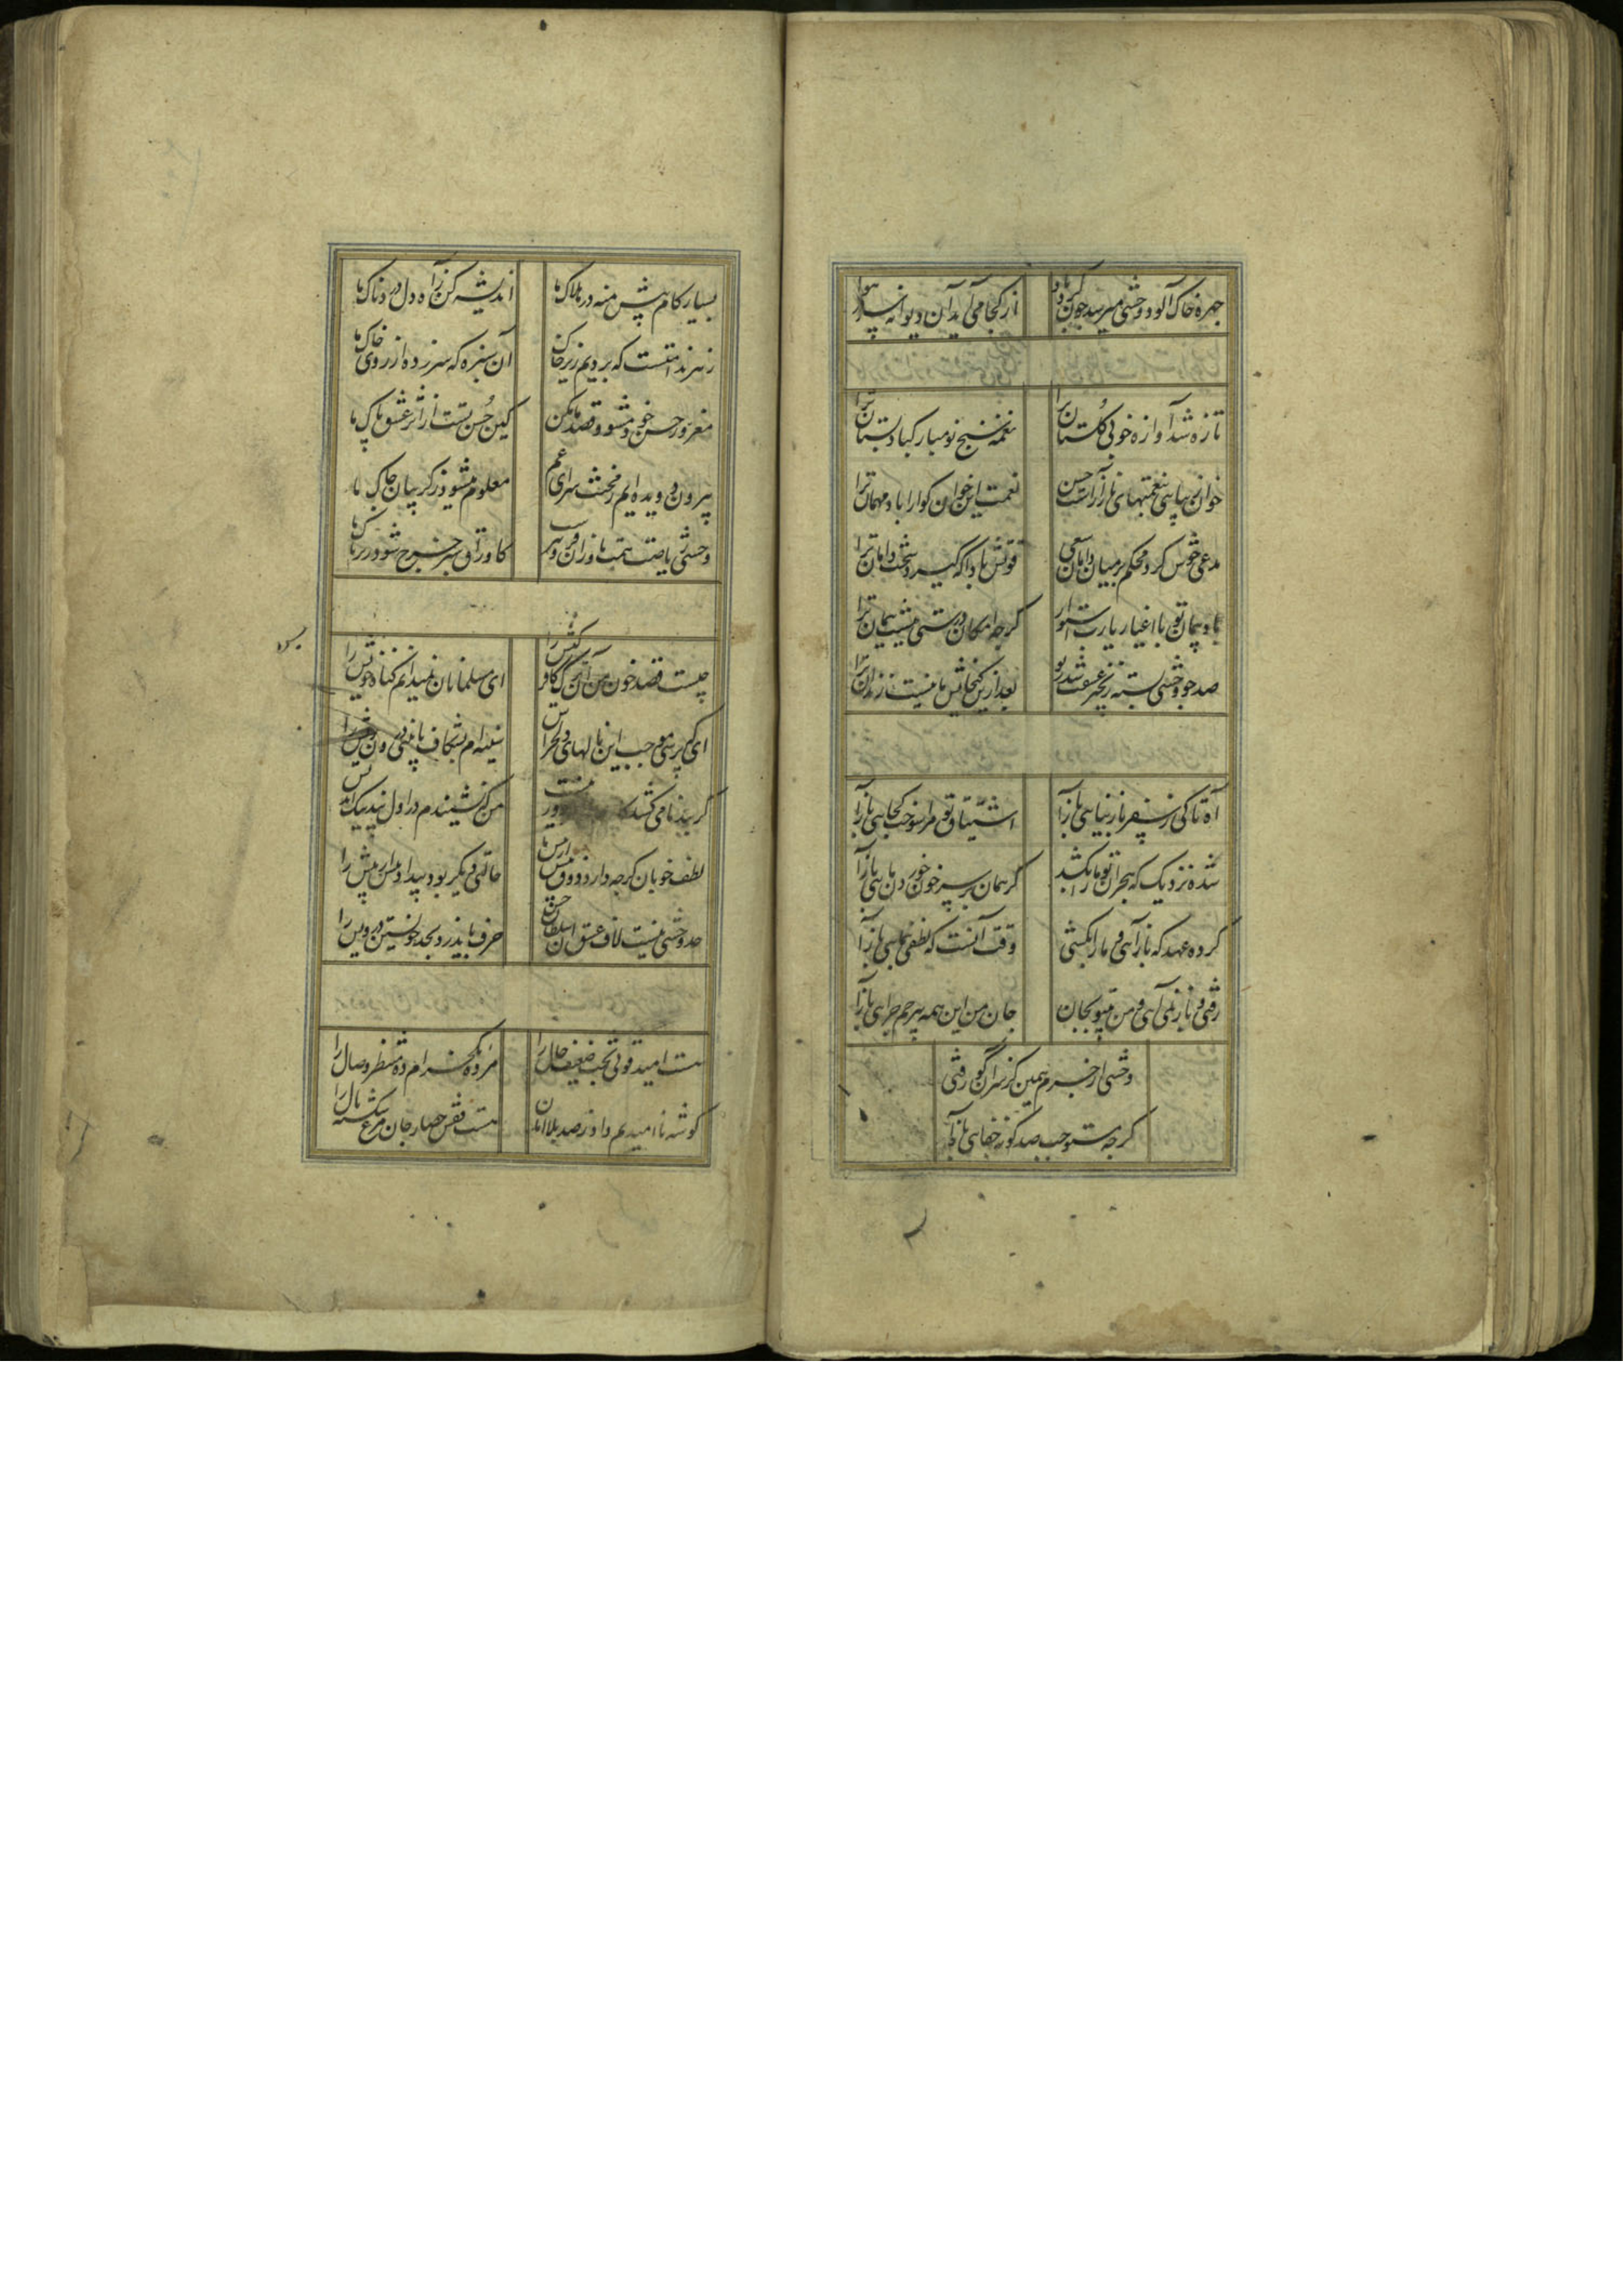 چهره خاک آلود وحشی میرسد چون گردباد
از کجا می آید آن دیوانه سر در هوا
تازه شد آوازه خوبی گلستان ترا
نغمه سنج نو مبارکباد بستان ترا
خوان زیبایی بنعمتهای ناز آراست حسن
نعمت این خوان گوارا باد مهمان ترا
مدعی خوش کرد محکم بر میان دامان سعی
فرصتش بادا که گیرد سخت دامان ترا
باد پیمان تو با اغیار یارب استوار
گرچه امکان درستی نیست پیمان ترا
صد چو وحشی بسته زنجیر عشقت شد ز نو
بعد ازین گنجایش ما نیست زندان ترا
آه تا کی ز سفر باز نیایی بازآ
اشتیاق تو مرا سوخت کجایی بازآ
شده نزدیک که هجران تو ما را بکشد
گر همان بر سر خون خوردن مایی بازآ
کرده عهد که بازآیی و ما را بکشی
وقت آنست که لطفی بنمایی بازآ
رفتی و باز نمی آیی و من بیتو بجان
جان من این همه بیرحم چرایی بازآ
وحشی از جرم همین کز سر آن کو رفتی
گرچه مستوجب صد گونه جفایی بازآ
بسیار گام پیش منه در هلاک ما
اندیشه کن ز آه دل دردناک ما
زهر ندامتست که بردیم زیر خاک
آن سبزه که سر زده از روی خاک ما
مغرور حسن خود مشو و قصد ما مکن
کین حسن تست از اثر عشق پاک ما
بیرون دویده ایم ز محنت سرای غم
معلوم میشود ز گریبان چاک ما
وحشی ریاضت همت ما زان فزونترست
کاوراق سبز چرخ شود برگ تاک ما
چیست قصد خون من آن ترک کافر کیش را
ای مسلمانان نمیدانم گناه خویش را
ای که پرسی موجب این نالهای دلخراش
سینه ام بشکاف تا بینی درون ریش را
گر به بدنامی کشد کارم در آخر دور نیست
من که نشنیدم در اول پند نیک اندیش را
لطف خوبان گرچه دارد ذوق بیش از بیش اما
حالتی دیگر بود بیداد بیش از بیش را
حد وحشی نیست لاف عشق آن سلطان حسن
حرف باید زد بحد خویشتن درویش را
هست امید قوتی بخت ضعیف حال را
مژده یک خرام ده منتظر وصال را
گوشه ناامیدیم داد ز صد بلا امان
هست قفس حصار جان مرغ شکسته بال را